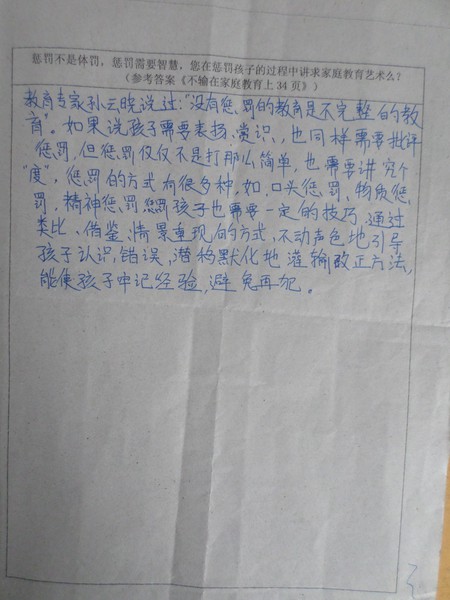 惩罚不是体罚，惩罚需要智慧，您在惩罚孩子的过程中讲求家庭教育艺术么？
（参考答案《不输在家庭教育上34页》）
教育专家孙云晓说过："没有惩罚的教育是不完整的教
育"。如果说孩子需要表扬、赏识，也同样需要批评
惩罚，但惩罚仅仅不是打那么简单，也需要讲究个
"度"，惩罚的方式有很多种，如，口头惩罚、物质惩
罚、精神惩罚 惩罚孩子也需要一定的技巧，通过
类比、借鉴、情景重现的方式，不动声色地引导
孩子认识，错误，潜移默化地灌输改正方法，
能使孩子牢记经验，避免再犯。